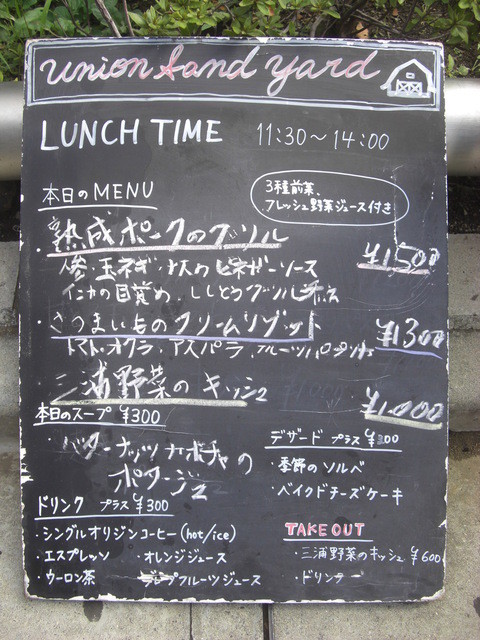 union Sand yard
LUNCH TIME 11:30～14:00
本日のMENU
3種前菜、
フレッシュ野菜ジュース付き
・熟成ポークのグリル ¥1,500
人参・玉ネギ・ナスのビネガーソース
インカの目覚め、ししとうグリル
・さつまいものクリームリゾット ¥1300
トマト、オクラ、アスパラ、フルーツパプリカ
・三浦野菜のキッシュ ¥1,000
本日のスープ ¥300
・バターナッツカボチャの
ポタージュ
デザート プラス ¥300
・季節のソルベ
・ベイクドチーズケーキ
ドリンク プラス ¥300
・シングルオリジンコーヒー(hot/ice)
・エスプレッソ ・オレンジジュース
・ウーロン茶 フルーツジュース
TAKE OUT
・三浦野菜のキッシュ ¥600
・ドリンク